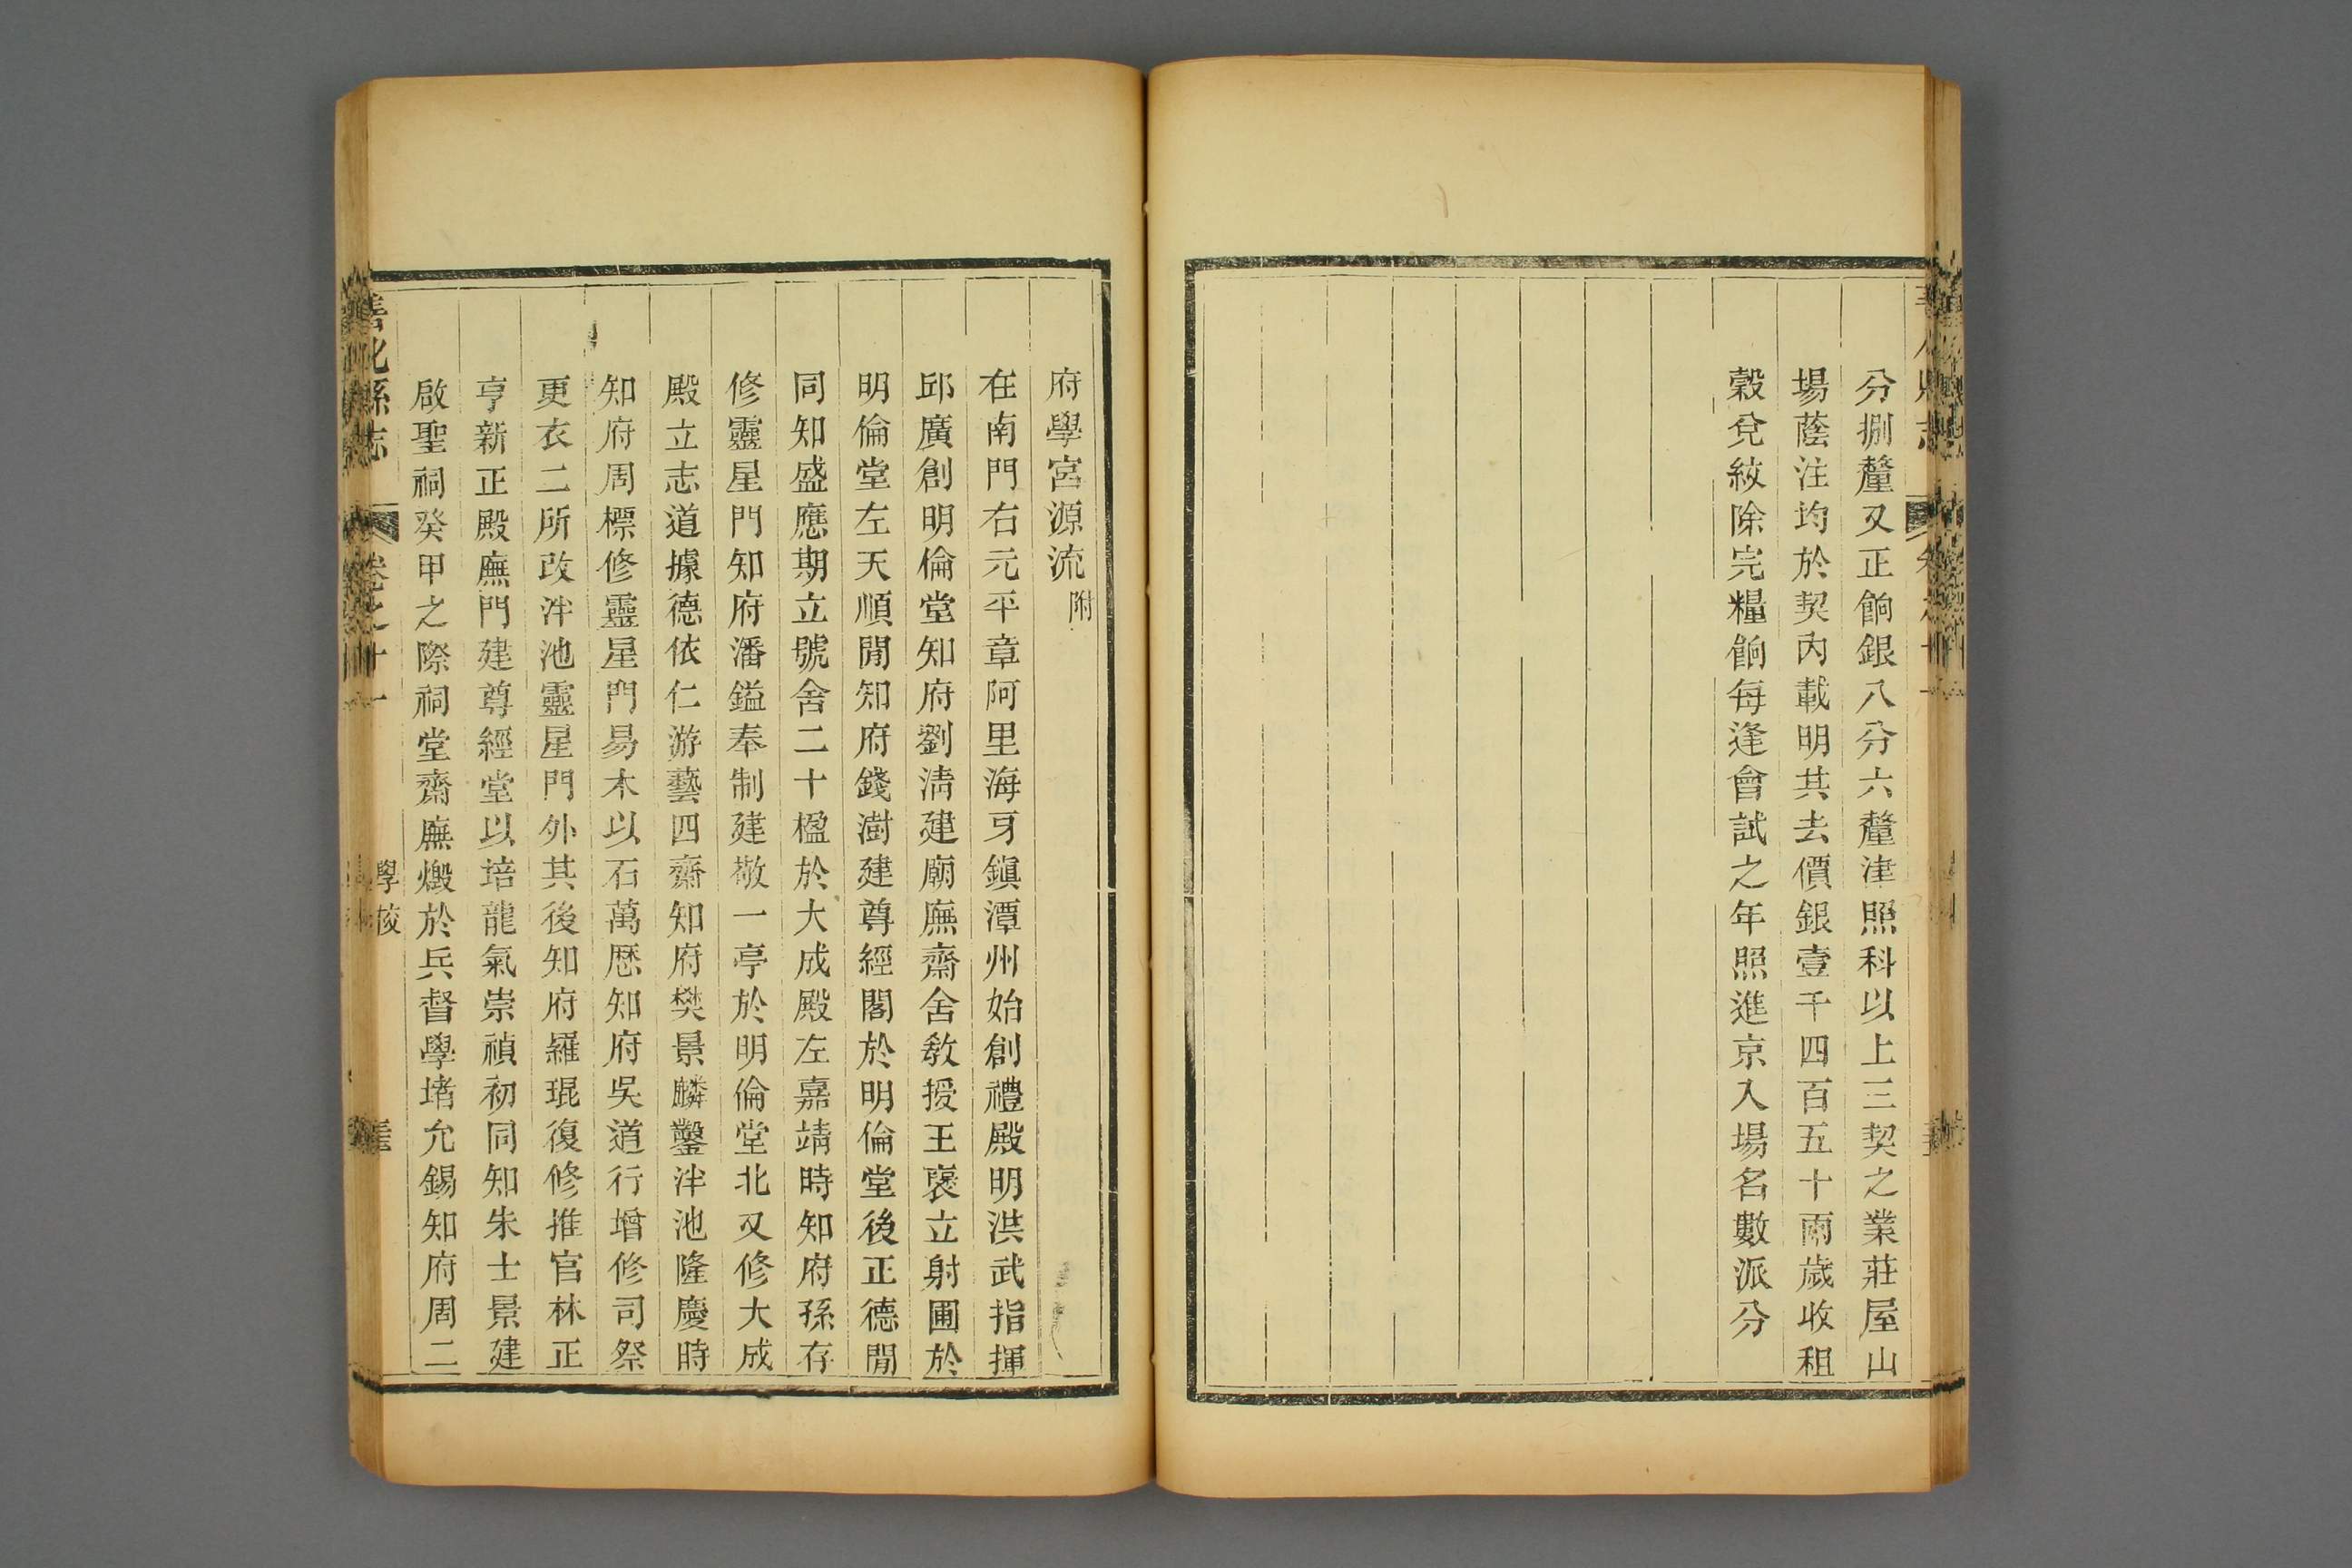 分捌釐又正餉銀八分六釐津照科以上三契之業莊屋山
場蔭注均於契內載明其去價銀壹千四百五十兩歲收租
穀兌紋除完糧餉每逢會試之年照進京入場名數派分
府學宮源流附
在南門右元平章阿里海牙鎭潭州始創禮殿明洪武指揮
邱廣創明倫堂知府劉淸建廟廡齋舍敎授王褒立射圃於
明倫堂左天順閒知府錢澍建尊經閣於明倫堂後正德閒
同知盛應期立號舍二十楹於大成殿左嘉靖時知府孫存
修靈星門知府潘鎰奉制建敬一亭於明倫堂北又修大成
殿立志道據德依仁游藝四齋知府樊景麟鑿泮池隆慶時
知府周標修靈星門易木以石萬厯知府吳道行增修司祭
更衣二所改泮池靈星門外其後知府羅琨復修推官林正
亨新正殿廡門建尊經堂以培龍氣崇禎初同知朱士景建
啟聖祠癸甲之際祠堂齋廡燬於兵督學堵允錫知府周二
善化縣志 卷之十一 學校